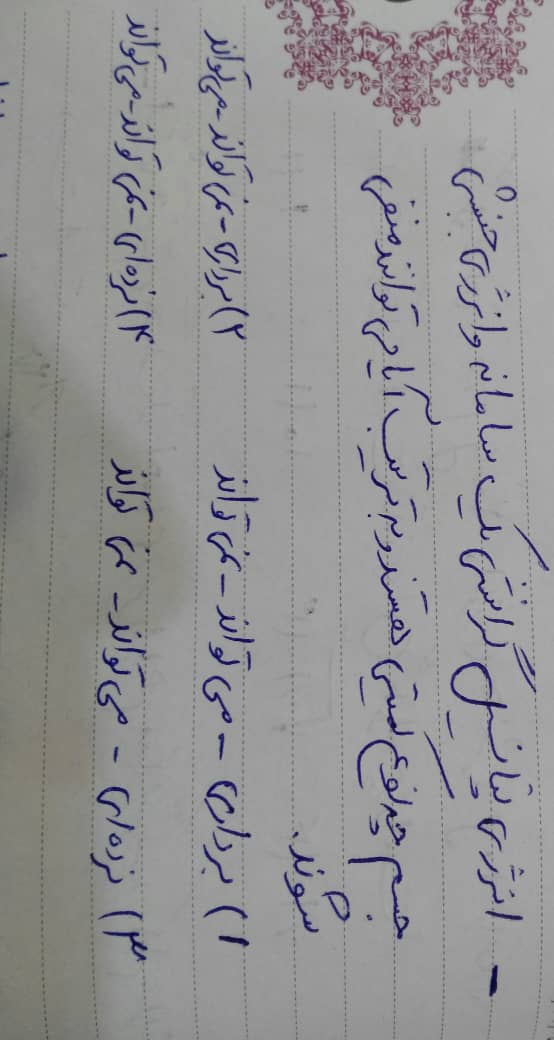 - انرژی پتانسیل گرانشی یک سامانه و انرژی جنبشی
جسم چه نوع کمیتی هستند و به ترتیب آیا می توانند منفی
شوند.
۱) برداری - می تواند - نمی تواند ۲) برداری - نمی تواند - می تواند
۳) نرده ای - می تواند - نمی تواند ۴) نرده ای - نمی تواند - می تواند